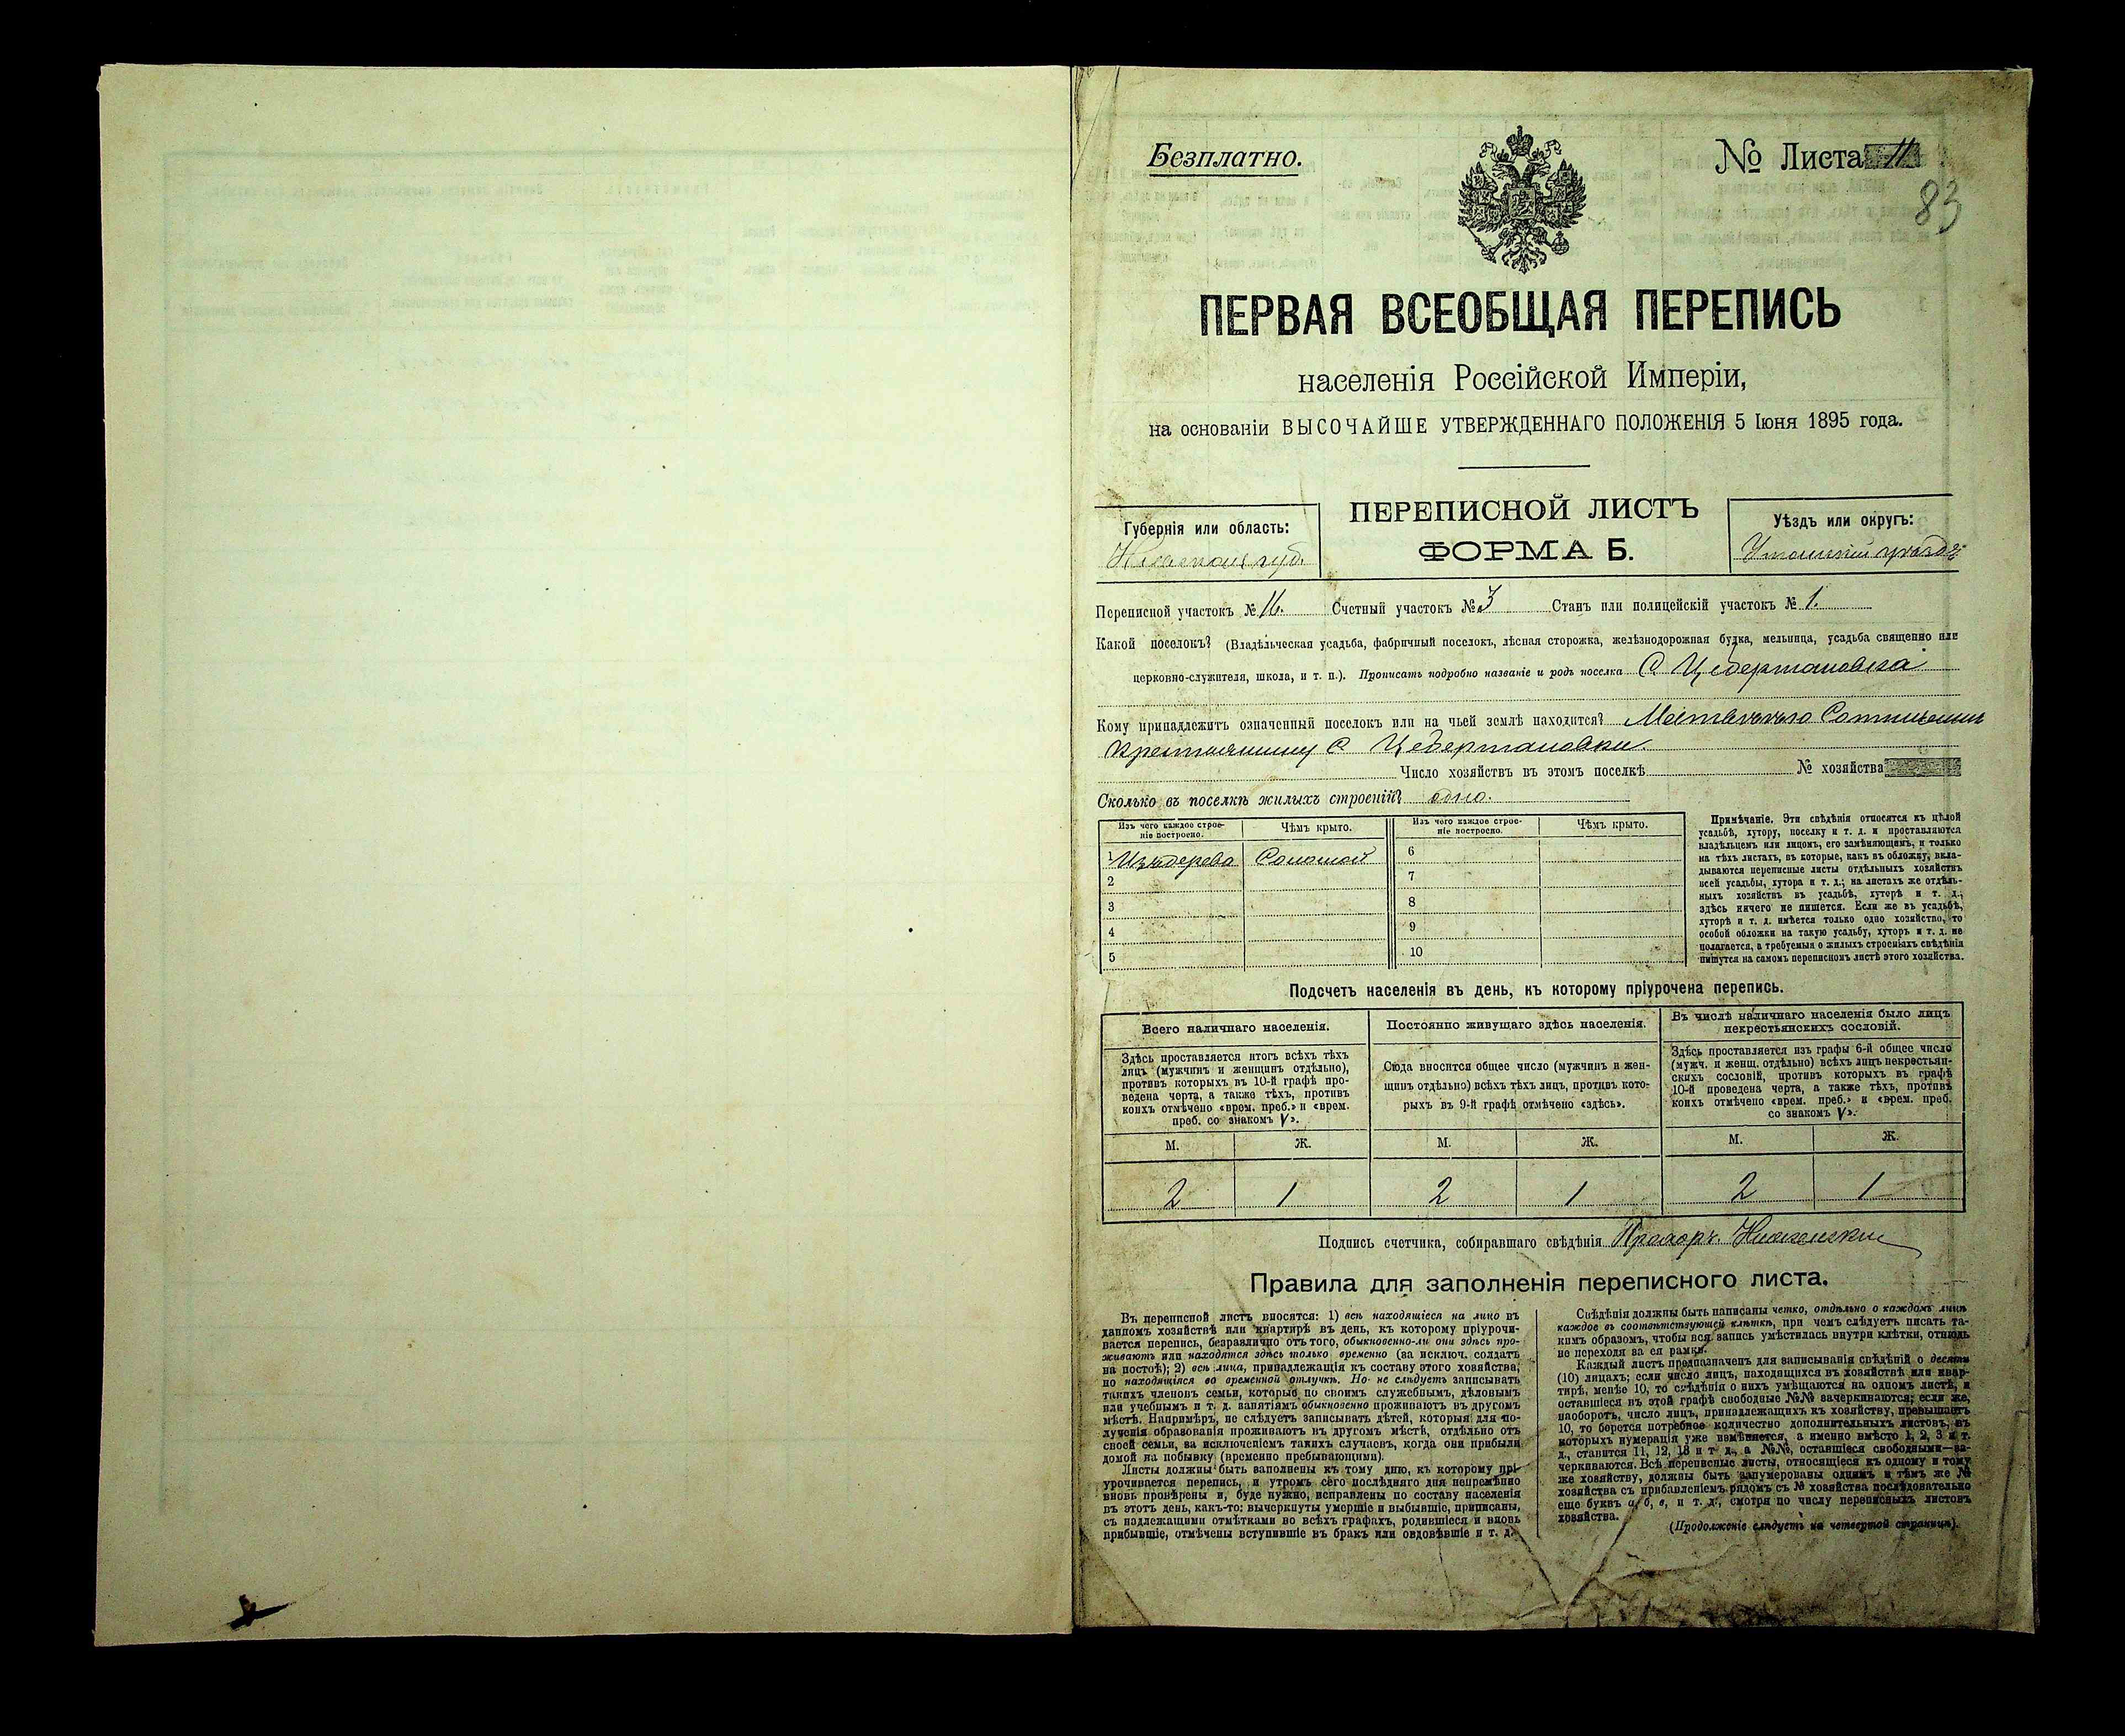 Безплатно.
№ Листа 11
83
ПЕРВАЯ ВСЕОБЩАЯ ПЕРЕПИСЬ
населенія Россійской Имперіи,
на основаніи ВЫСОЧАЙШЕ УТВЕРЖДЕННАГО ПОЛОЖЕНІЯ 5 Іюня 1895 года.
ПЕРЕПИСНОЙ ЛИСТЪ
ФОРМА Б.
Губернія или область:
Кіевская губ.
Уѣздъ или округъ:
Уманскій уѣздъ
Переписной участокъ № 16. Счетный участокъ № 3 Станъ или полицейскій участокъ № 1.
Какой поселокъ? (Владѣльческая усадьба, фабричный поселокъ, лѣсная сторожка, желѣзнодорожная будка, мельница, усадьба священно или
церковно-служителя, школа, и т. п.). Прописать подробно названіе и родъ поселка С Цебермановка
Кому принадлежитъ означенный поселокъ или на чьей землѣ находится?
Крестьянину С Цебермановки
Число хозяйствъ въ этомъ поселкѣ № хозяйства
Сколько въ поселкѣ жилыхъ строеній? одно.
Изъ чего каждое строе-
ніе построено.
Чѣмъ крыто.
Изъ чего каждое строе-
ніе построено.
Чѣмъ крыто.
1 Изъ дерева Соломой
6
2
7
3
8
4
9
5
10
Примѣчаніе. Эти свѣдѣнія относятся къ цѣлой
усадьбѣ, хутору, поселку и т. д. и проставляются
владѣльцемъ или лицомъ, его замѣняющимъ, и только
на тѣхъ листахъ, въ которые, какъ въ обложку, вкла-
дываются переписные листы отдѣльныхъ хозяйствъ
всей усадьбы, хутора и т. д.; на листахъ же отдѣль-
ныхъ хозяйствъ въ усадьбѣ, хуторѣ и т. д.,
здѣсь ничего не пишется. Если же въ усадьбѣ,
хуторѣ и т. д. имѣется только одно хозяйство, то
особой обложки на такую усадьбу, хуторъ и т. д. не
полагается, а требуемыя о жилыхъ строеніяхъ свѣдѣнія
пишутся на самомъ переписномъ листѣ этого хозяйства.
Подсчетъ населенія въ день, къ которому пріурочена перепись.
Всего наличнаго населенія.
Постоянно живущаго здѣсь населенія.
Въ числѣ наличнаго населенія было лицъ
некрестьянскихъ сословій.
Здѣсь проставляется итогъ всѣхъ тѣхъ
лицъ (мужчинъ и женщинъ отдѣльно),
противъ которыхъ въ 10-й графѣ про-
ведена черта, а также тѣхъ, противъ
коихъ отмѣчено «врем. преб.» и «врем.
преб. со знакомъ V».
Сюда вносится общее число (мужчинъ и жен-
щинъ отдѣльно) всѣхъ тѣхъ лицъ, противъ кото-
рыхъ въ 9-й графѣ отмѣчено «здѣсь».
Здѣсь проставляется изъ графы 6-й общее число
(мужч. и женщ. отдѣльно) всѣхъ лицъ некрестьян-
скихъ сословій, противъ которыхъ въ графѣ
10-й проведена черта, а также тѣхъ, противъ
коихъ отмѣчено «врем. преб.» и «врем. преб.
со знакомъ V».
М. Ж. М. Ж. М. Ж.
2 1 2 1 2 1
Подпись счетчика, собиравшаго свѣдѣнія Прохоръ
Правила для заполненія переписного листа.
Въ переписной листъ вносятся: 1) всѣ находящіеся на лицо въ
данномъ хозяйствѣ или квартирѣ въ день, къ которому пріурочи-
вается перепись, безразлично отъ того, обыкновенно-ли они здѣсь про-
живаютъ или находятся здѣсь только временно (за исключ. солдатъ
на постоѣ); 2) всѣ лица, принадлежащія къ составу этого хозяйства,
но находящіяся во временной отлучкѣ. Но не слѣдуетъ записывать
такихъ членовъ семьи, которые по своимъ служебнымъ, дѣловымъ
или учебнымъ и т. д. занятіямъ обыкновенно проживаютъ въ другомъ
мѣстѣ. Напримѣръ, не слѣдуетъ записывать дѣтей, которыя для по-
лученія образованія проживаютъ въ другомъ мѣстѣ, отдѣльно отъ
своей семьи, за исключеніемъ такихъ случаевъ, когда они прибыли
домой на побывку (временно пребывающими).
Листы должны быть заполнены къ тому дню, къ которому прі-
урочивается перепись, и утромъ сего послѣдняго дня непремѣнно
вновь провѣрены и, буде нужно, исправлены по составу населенія
въ этотъ день, какъ-то: вычеркнуты умершіе и выбывшіе, приписаны,
съ надлежащими отмѣтками во всѣхъ графахъ, родившіеся и вновь
прибывшіе, отмѣчены вступившіе въ бракъ или овдовѣвшіе и т. д.
Свѣдѣнія должны быть написаны четко, отдѣльно о каждомъ лицѣ
каждое въ соотвѣтствующей клѣткѣ, при чемъ слѣдуетъ писать та-
кимъ образомъ, чтобы вся запись умѣстилась внутри клѣтки, отнюдь
не переходя за ея рамки.
Каждый листъ предназначенъ для записыванія свѣдѣній о десяти
(10) лицахъ; если число лицъ, находящихся въ хозяйствѣ или квар-
тирѣ, менѣе 10, то свѣдѣнія о нихъ умѣщаются на одномъ листѣ, и
оставшіеся въ этой графѣ свободные №№ зачеркиваются; если же,
наоборотъ, число лицъ, принадлежащихъ къ хозяйству, превышаетъ
10, то берется потребное количество дополнительныхъ листовъ, въ
которыхъ нумерація уже измѣняется, а именно вмѣсто 1, 2, 3 и т.
д., ставится 11, 12, 13 и т. д., а №№, оставшіеся свободными—за-
черкиваются. Всѣ переписные листы, относящіеся къ одному и тому
же хозяйству, должны быть занумерованы однимъ и тѣмъ же №
хозяйства съ прибавленіемъ рядомъ съ № хозяйства послѣдовательно
еще буквъ а, б, в, и т. д., смотря по числу переписныхъ листовъ
хозяйства.
(Продолженіе слѣдуетъ на четвертой страницѣ).